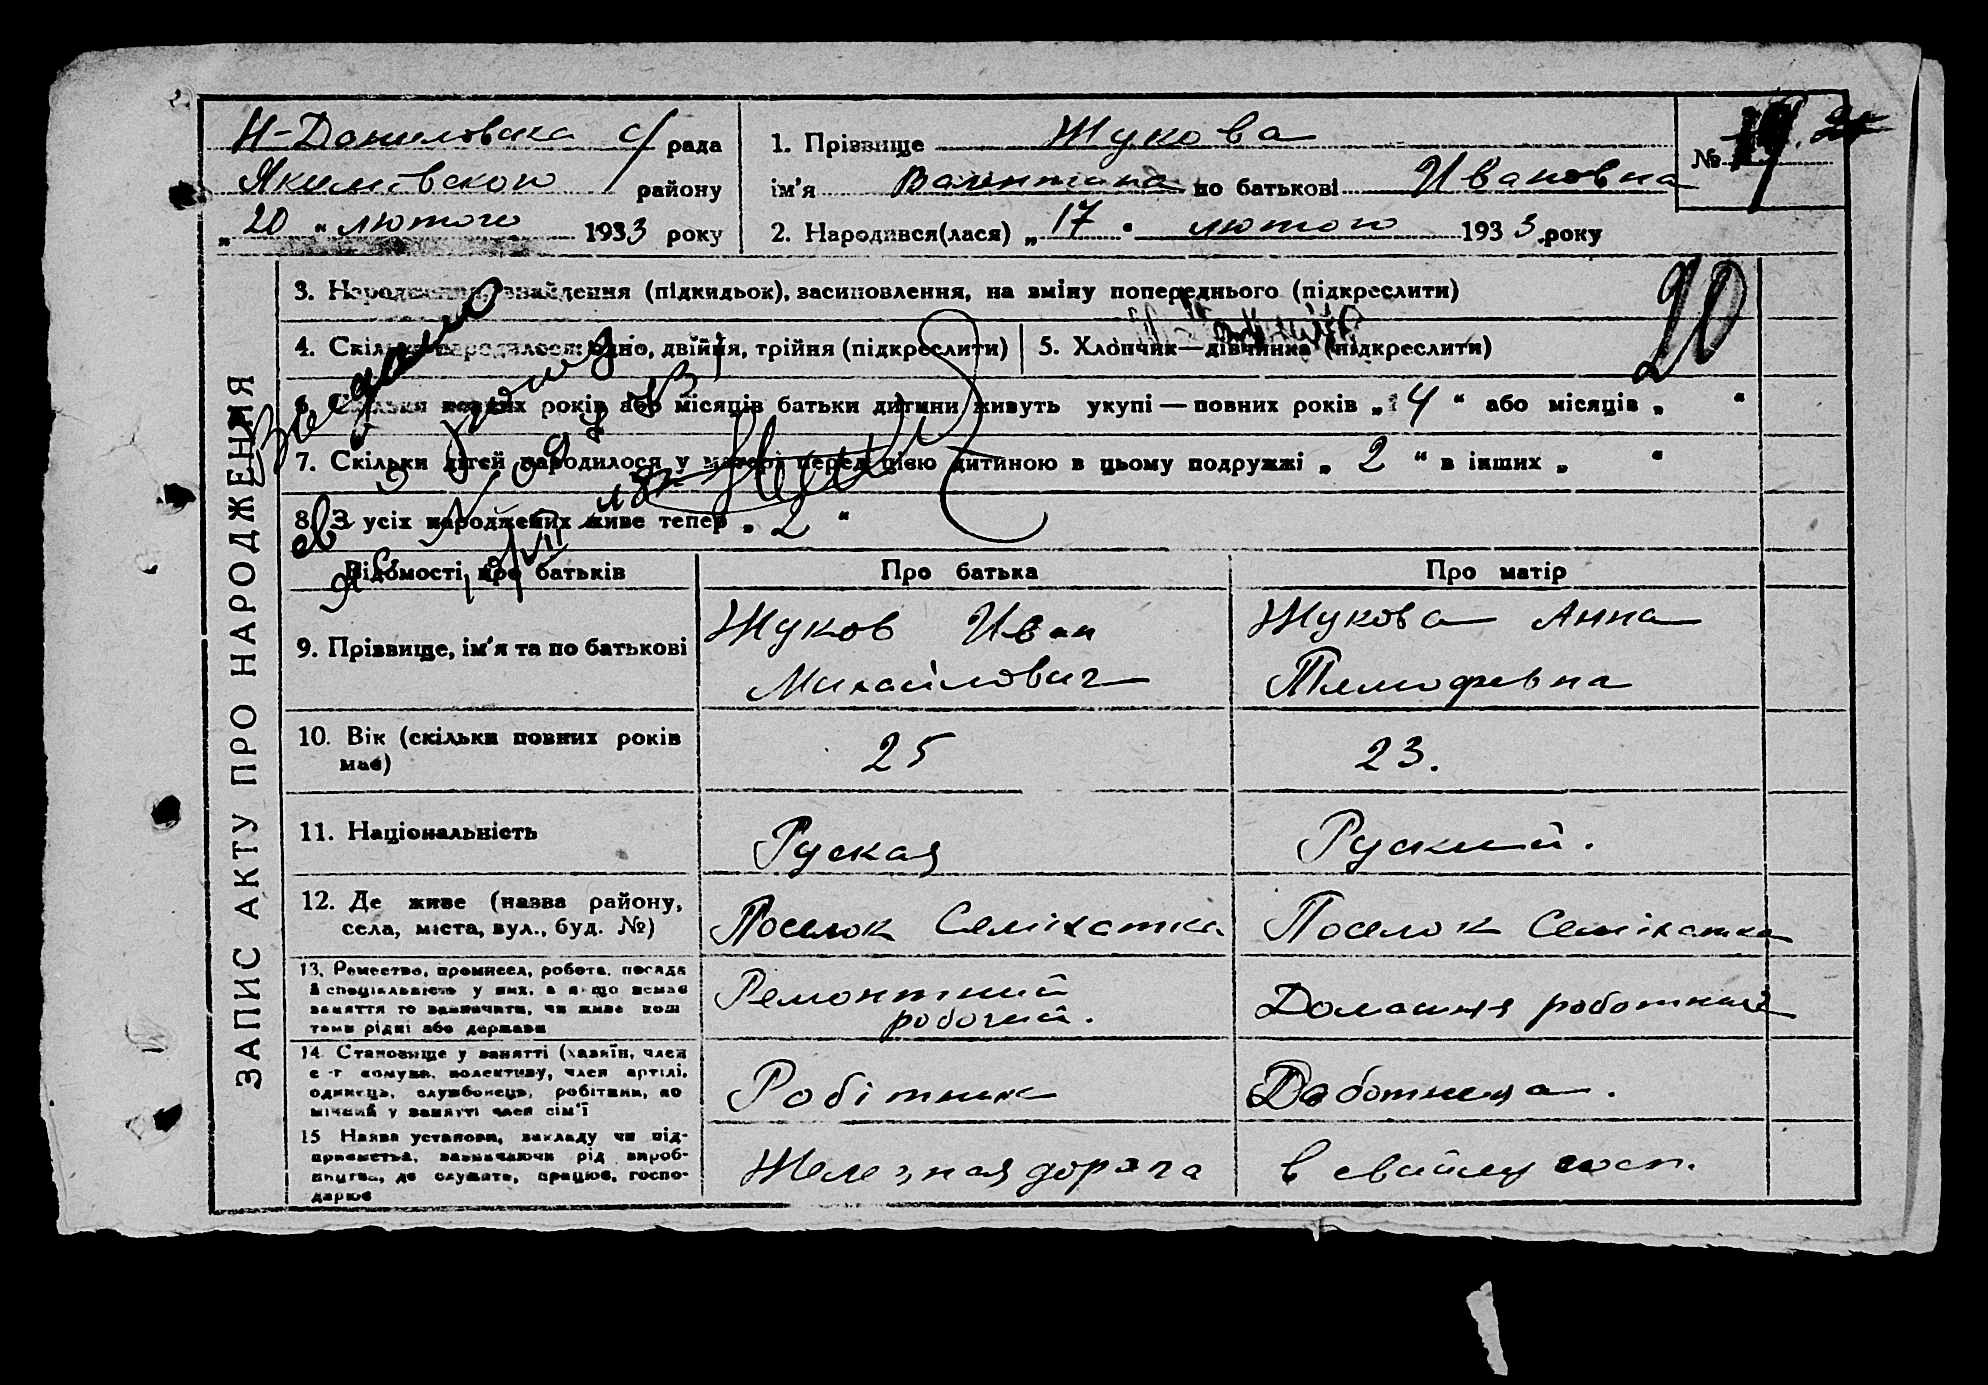 Н-Даниловска с/рада
Якимівского району
„20“ лютого 1933 року
1. Прізвище Жукова
ім'я Валентина по батькові Ивановна
2. Народився(лася) „17“ лютого 1933 року
№
20
ЗАПИС АКТУ ПРО НАРОДЖЕННЯ
3. Народження, знайдення (підкидьок), засиновлення, на зміну попереднього (підкреслити)
4. Скільки народилося: одно, двійня, трійня (підкреслити)
5. Хлопчик—дівчинка (підкреслити)
6. Скільки повних років або місяців батьки дитини живуть укупі — повних років „4“ або місяців „ “
7. Скільки дітей народилося у матері перед цією дитиною в цьому подружжі „2“ в інших „ “
8. З усіх народжених живе тепер „2“
Відомості про батьків
Про батька
Про матір
9. Прізвище, ім'я та по батькові
Жуков Иван
Михайлович
Жукова Анна
Тимофевна
10. Вік (скільки повних років
має)
25
23.
11. Національність
Руская
Руский.
12. Де живе (назва району,
села, міста, вул., буд. №)
Поселок Семіхатка
Поселок Семіхатка
13. Ремество, промисел, робота, посада
й спеціяльність у них, а якщо немає
заняття то зазначити, чи живе кош
тами рідні або держави
Ремонтний
робочий.
Домашня работниця
14. Становище у занятті (хазяїн, член
с-г комуни, колективу, член артілі,
одинець, службовець, робітник, по
мічний у занятті член сім'ї
Робітник
Работница.
15 Назва установи, закладу чи під-
приємства, зазначаючи рід вироб-
ництва, де служить, працює, госпо-
дарює
Железная дорога
в свойму госп.